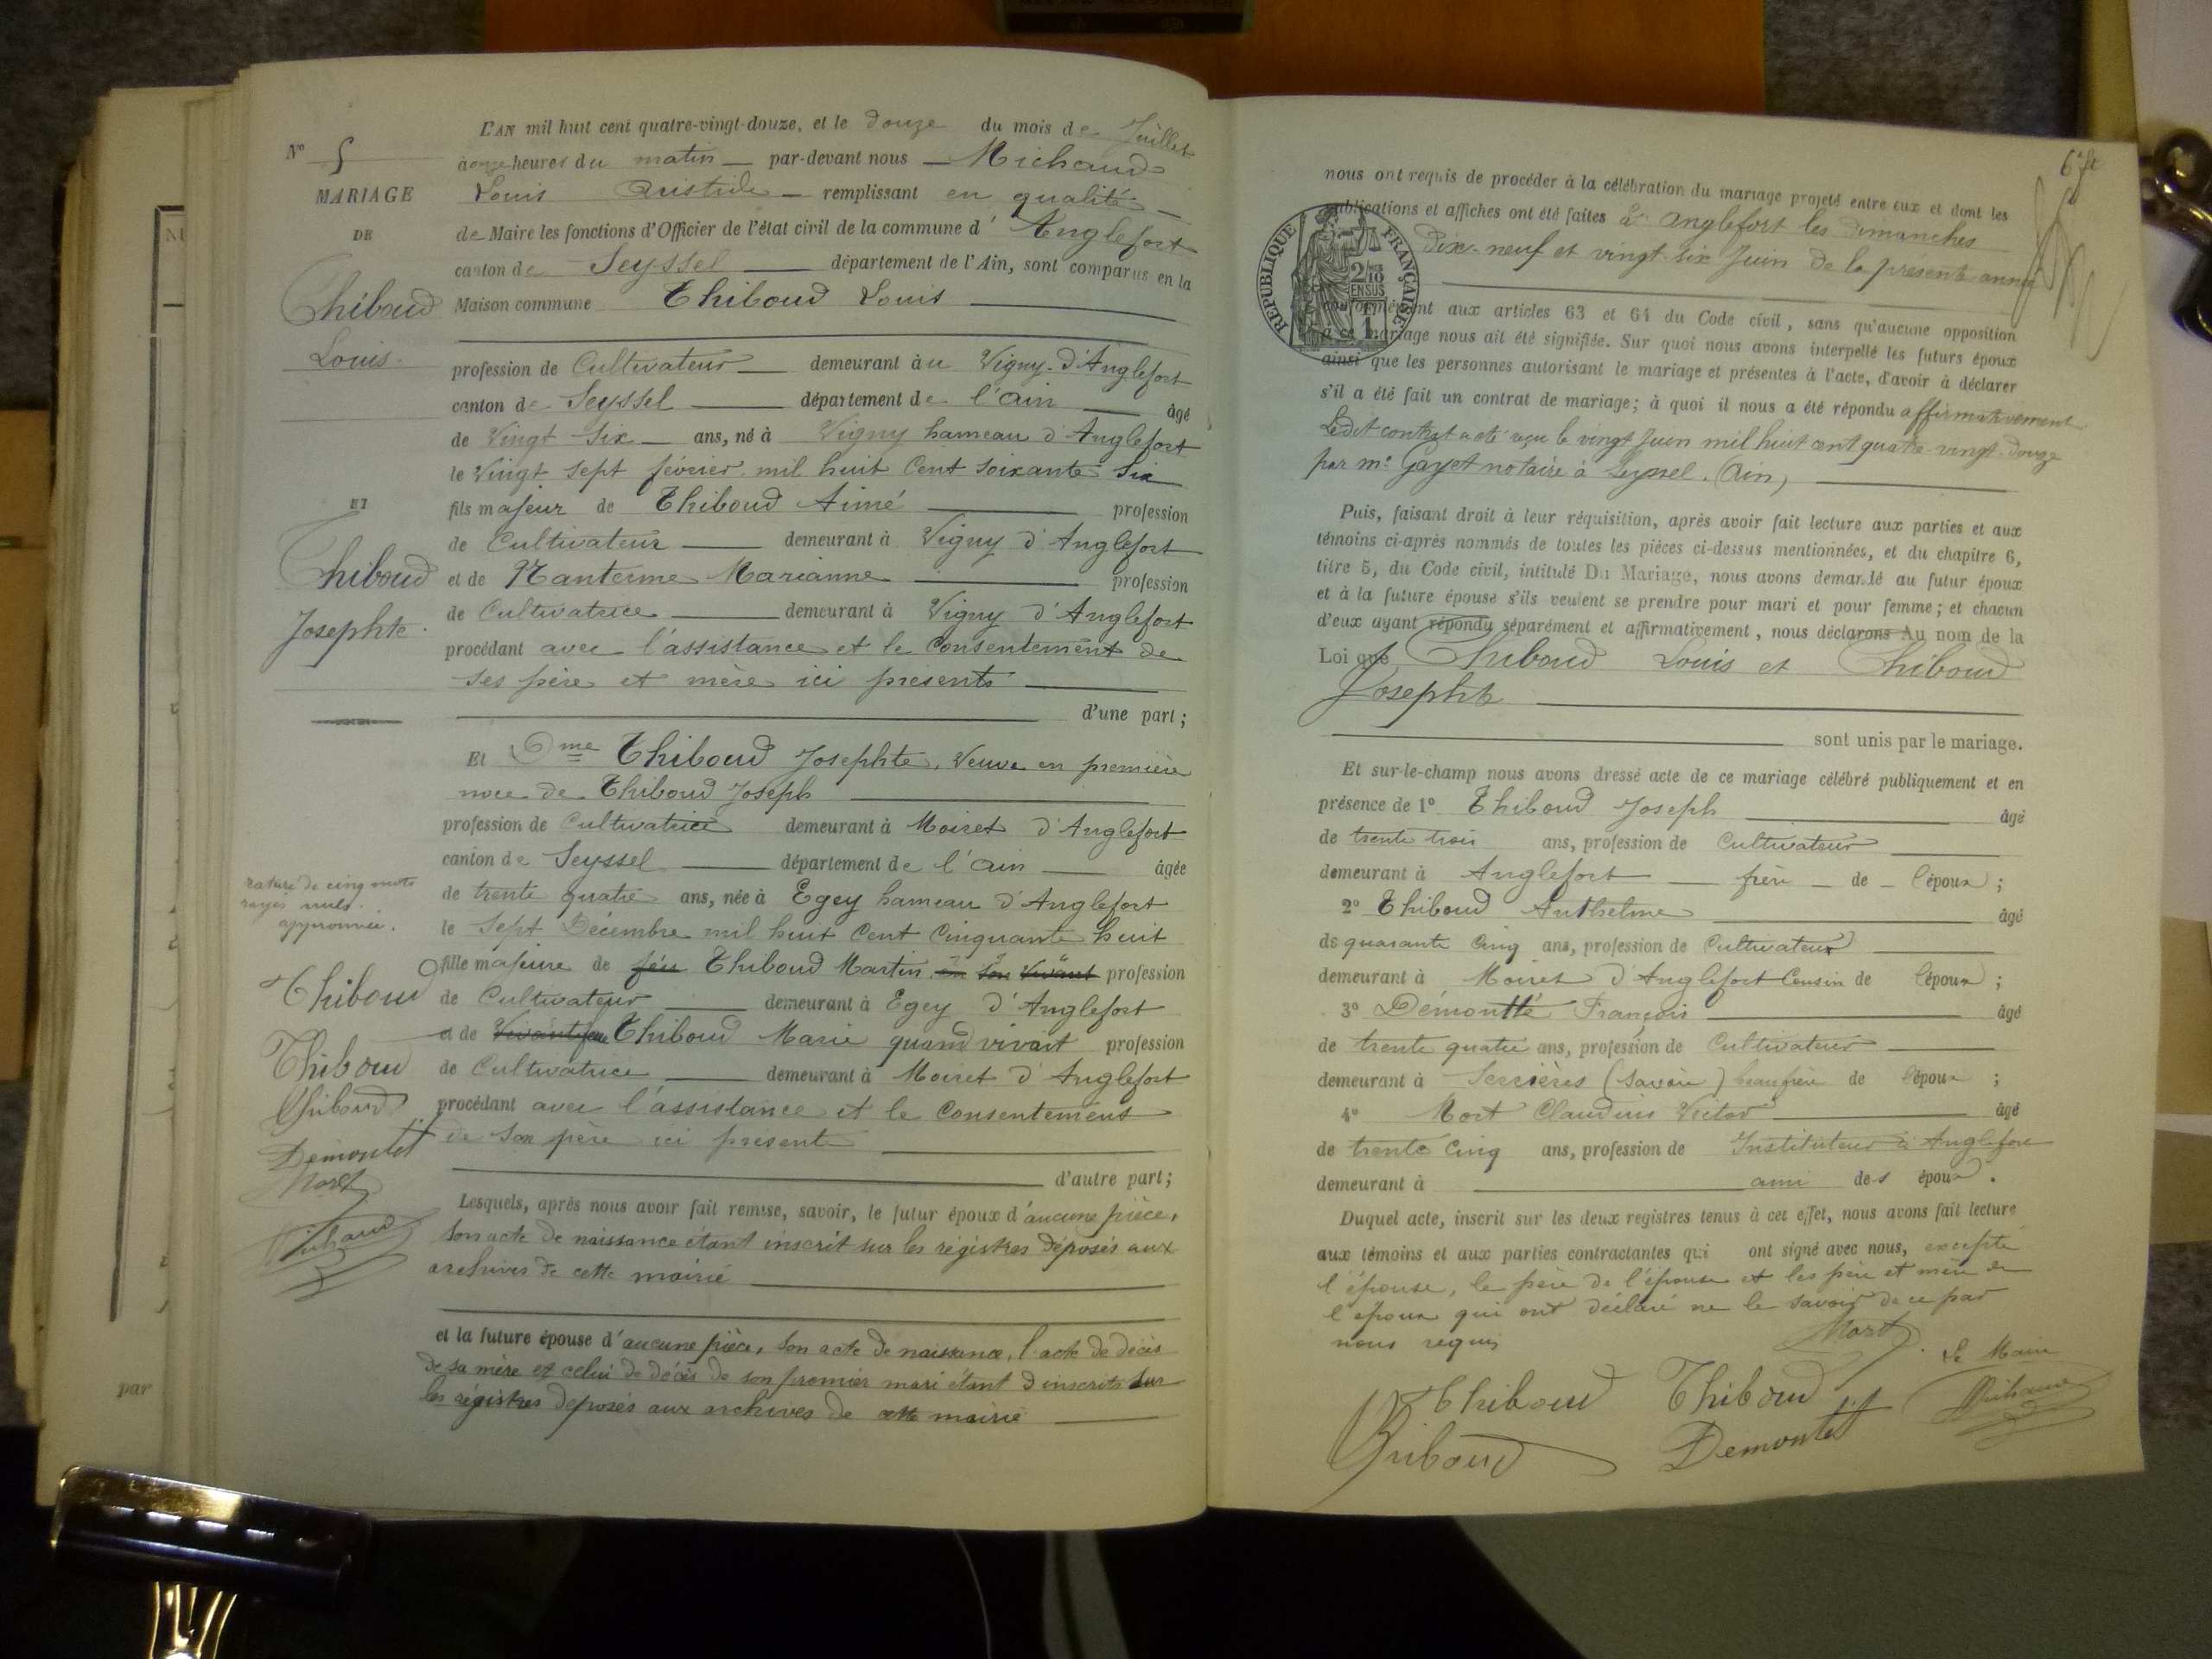 N° 5
MARIAGE
DE
Thiboud
Louis
ET
Thiboud
Josephte.
L'AN mil huit cent quatre-vingt-douze, et le douze du mois de Juillet
à onze heures du matin — par-devant nous — Michaud
Louis Aristide — remplissant en qualité —
de Maire les fonctions d'Officier de l'état civil de la commune d'Anglefort
canton de Seyssel — département de l'Ain, sont comparus en la
Maison commune Thiboud Louis
profession de Cultivateur — demeurant au Vigny d'Anglefort
canton de Seyssel — département de l'Ain — âgé
de Vingt Six — ans, né à Vigny hameau d'Anglefort
le Vingt Sept février mil huit Cent Soixante Six
fils majeur de Thiboud Aimé — profession
de Cultivateur — demeurant à Vigny d'Anglefort
et de Nanterme Marianne — profession
de Cultivatrice — demeurant à Vigny d'Anglefort
procédant avec l'assistance et le Consentement de
Ses père et mère ici présents
d'une part ;
Et Dme Thiboud Josephte, Veuve en première
noce de Thiboud Joseph
profession de Cultivatrice demeurant à Moiret d'Anglefort
canton de Seyssel — département de l'Ain — âgée
de trente quatre ans, née à Egey hameau d'Anglefort
le Sept Décembre mil huit Cent Cinquante huit
fille majeure de feu Thiboud Martin en son vivant profession
de Cultivateur — demeurant à Egey d'Anglefort
et de Thiboud Marie quand vivait profession
de Cultivatrice — demeurant à Moiret d'Anglefort
procédant avec l'assistance et le Consentement
de Son père ici présent
d'autre part ;
Lesquels, après nous avoir fait remise, savoir, le futur époux d'aucune pièce,
son acte de naissance étant inscrit sur les régistres déposés aux
archives de cette mairie
et la future épouse d'aucune pièce, son acte de naissance, l'acte de décès
de sa mère et celui de décès de son premier mari étant d inscrits sur
les régistres déposés aux archives de cette mairie
rature de cinq mots
rayés nuls.
approuvée.
Thiboud
Thiboud
Thiboud
Demontet
Mort
Michaud
par
6
nous ont requis de procéder à la célébration du mariage projeté entre eux et dont les
publications et affiches ont été faites à Anglefort les Dimanches
Dix-neuf et vingt-six Juin de la présente année
REPUBLIQUE FRANÇAISE
conformément aux articles 63 et 64 du Code civil, sans qu'aucune opposition
à ce mariage nous ait été signifiée. Sur quoi nous avons interpellé les futurs époux
ainsi que les personnes autorisant le mariage et présentes à l'acte, d'avoir à déclarer
s'il a été fait un contrat de mariage ; à quoi il nous a été répondu affirmativement
Ledit contrat acte reçu le vingt Juin mil huit cent quatre-vingt-douze
par Me Gayet notaire à Seyssel. (Ain)
Puis, faisant droit à leur réquisition, après avoir fait lecture aux parties et aux
témoins ci-après nommés de toutes les pièces ci-dessus mentionnées, et du chapitre 6,
titre 5, du Code civil, intitulé Du Mariage, nous avons demandé au futur époux
et à la future épouse s'ils veulent se prendre pour mari et pour femme ; et chacun
d'eux ayant répondu séparément et affirmativement, nous déclarons Au nom de la
Loi que Thiboud Louis et Thiboud
Josephte
sont unis par le mariage.
Et sur-le-champ nous avons dressé acte de ce mariage célébré publiquement et en
présence de 1° Thiboud Joseph — âgé
de trente trois ans, profession de Cultivateur
demeurant à Anglefort — frère — de — l'époux ;
2° Thiboud Anthelme — âgé
de quarante Cinq ans, profession de Cultivateur
demeurant à Moiret d'Anglefort Cousin de l'époux ;
3° Démontté François — âgé
de trente quatre ans, profession de Cultivateur
demeurant à Serrières (Savoie) beau frère de l'époux ;
4° Mort Claudius Victor — âgé
de trente Cinq ans, profession de Instituteur à Anglefort
demeurant à — ami des époux.
Duquel acte, inscrit sur les deux registres tenus à cet effet, nous avons fait lecture
aux témoins et aux parties contractantes qui ont signé avec nous, excepté
l'épouse, le père de l'épouse et les père et mère de
l'époux qui ont déclaré ne le savoir de ce par
nous requis
Mort
Le Maire
Thiboud Thiboud Michaud
Thiboud Demontet